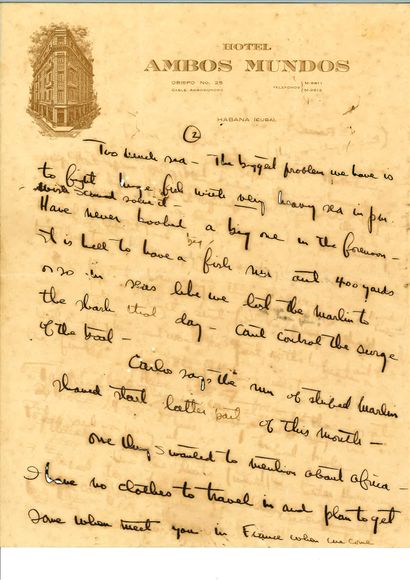 HOTEL
AMBOS MUNDOS
OBISPO No. 25
TELEFONOS
HABANA (CUBA)
2
Too much sea – The biggest problem we have is
to fight huge fish with very heavy sea in p.m.
Have never hooked a big one in the forenoon –
It is hell to have a big fish run out 400 yards
or so in seas like we lost the marlin to
the shark that day – Can't control the surge
of the boat –
Carlos says the run of striped marlin
should start latter part of this month –
One thing I wanted to mention about Africa –
I have no clothes to travel in and plan to get
some when meet you in France when we come